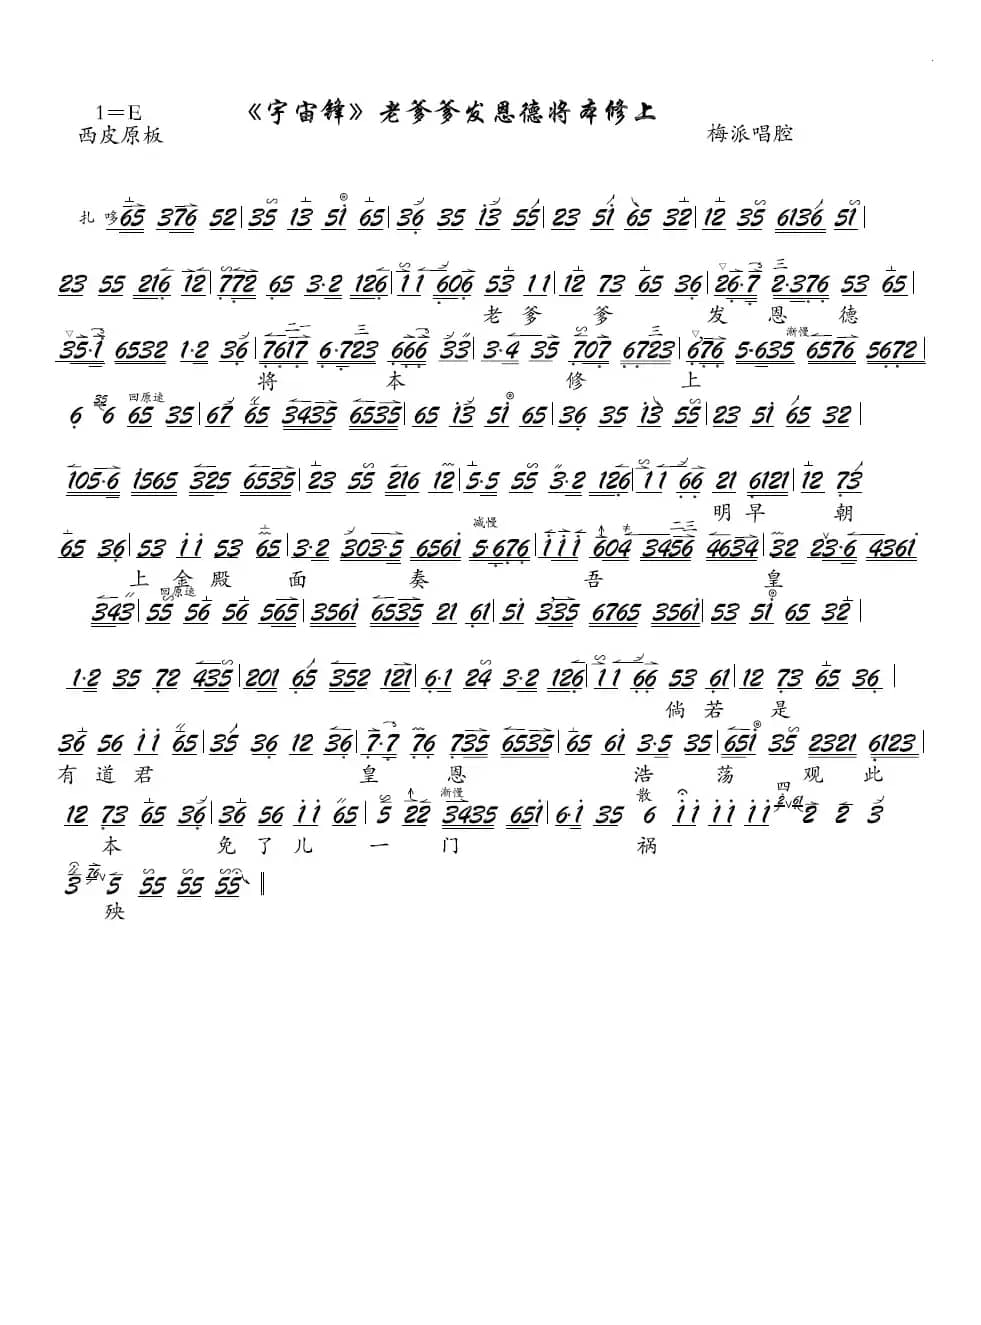 1=E 《宇宙锋》老爹爹发恩德将本修上
西皮原板 梅派唱腔
扎 哆 65 376 52 | 35 13 51 65 | 36 35 13 55 | 23 51 65 32 | 12 35 6136 51 |
23 55 216 12 | 772 65 3·2 126 | 11 606 53 11 | 12 73 65 36 | 26·7 2·376 53 65 |
老 爹 爹 发 恩 德
三
35·1 6532 1·2 36 | 7617 6·723 666 33 | 3·4 35 707 6723 | 676 5·635 6576 5672 |
二一 三 三 渐慢
将 本 修 上
6 35 6 65 35 | 67 65 3435 6535 | 65 13 51 65 | 36 35 13 55 | 23 51 65 32 |
回原速
105·6 1565 325 6535 | 23 55 216 12 | 5·5 55 3·2 126 | 11 66 21 6121 | 12 73 |
明 早 朝
65 36 | 53 11 53 65 | 3·2 303·5 6561 5·676 | 111 604 3456 4634 | 32 23·6 4361
减慢 二三
上 金 殿 面 奏 吾 皇
343 | 55 56 56 565 | 3561 6535 21 61 | 51 335 6765 3561 | 53 51 65 32 |
回原速
1·2 35 72 435 | 201 65 352 121 | 6·1 24 3·2 126 | 11 66 53 61 | 12 73 65 36 |
倘 若 是
36 56 11 65 | 35 36 12 36 | 7·7 76 735 6535 | 65 61 3·5 35 | 651 35 2321 6123 |
有 道 君 皇 恩 浩 荡 观 此
12 73 65 36 | 36 56 11 65 | 5 22 3435 651 | 6·1 35 6 11 11 2 61 2 2 3
渐慢 散 四
本 免 了 儿 一 门 祸
3 76 5 55 55 55 ‖
殃